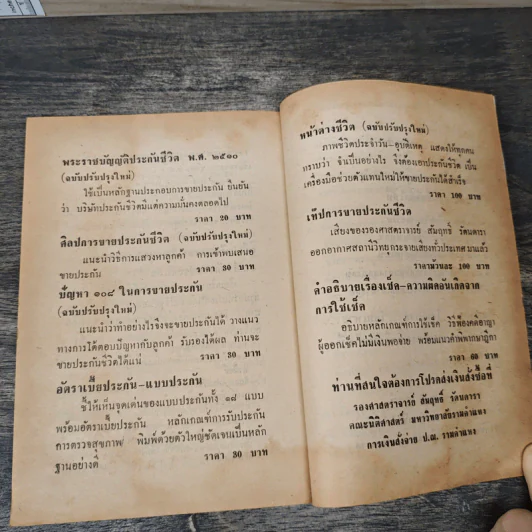 พระราชบัญญัติประกันชีวิต พ.ศ. ๒๕๑๐
(ฉบับปรับปรุงใหม่)
ใช้เป็นหลักฐานประกอบการขายประกัน ยืนยัน
ว่า บริษัทประกันชีวิตมีแต่ความมั่นคงตลอดไป
ราคา 20 บาท
ศิลปการขายประกันชีวิต (ฉบับปรับปรุงใหม่)
แนะนำวิธีการแสวงหาลูกค้า การเข้าพบเสนอ
ขายประกัน ราคา 30 บาท
ปัญหา ๑๐๘ ในการขายประกัน
(ฉบับปรับปรุงใหม่)
แนะนำว่าทำอย่างไรจึงจะขายประกันได้ วางแนว
ทางการโต้ตอบปัญหากับลูกค้า รับรองได้ผล ท่านจะ
ขายประกันชีวิตได้แน่ ราคา 30 บาท
อัตราเบี้ยประกัน-แบบประกัน
ชี้ให้เห็นจุดเด่นของแบบประกันทั้ง ๑๘ แบบ
พร้อมอัตราเบี้ยประกัน หลักเกณฑ์การรับประกัน
การตรวจสุขภาพ/ พิมพ์ด้วยตัวใหญ่ชัดเจนเป็นหลัก
ฐานอย่างดี ราคา 30 บาท
หน้าต่างชีวิต (ฉบับปรับปรุงใหม่)
ภาพชีวิตประจำวัน-อุบัติเหตุ แสดงให้ทุกคน
ทราบว่า จำเป็นอย่างไร จึงต้องเอาประกันชีวิต เป็น
เครื่องมือช่วยตัวแทนใหม่ให้ขายประกันได้สำเร็จ
ราคา 100 บาท
เท็ปการขายประกันชีวิต
เสียงของรองศาสตราจารย์ สัมฤทธิ์ รัตนดารา
ออกอากาศสถานีวิทยุกระจายเสียงทั่วประเทศมาแล้ว
ราคาม้วนละ 100 บาท
คำอธิบายเรื่องเช็ค-ความผิดอันเกิดจาก
การใช้เช็ค
อธิบายหลักเกณฑ์การใช้เช็ค วิธีฟ้องคดีอาญา
ผู้ออกเช็คไม่มีเงินพอจ่าย พร้อมแนวคำพิพากษาฎีกา
ราคา 60 บาท
ท่านที่สนใจต้องการโปรดส่งเงินสั่งซื้อที่
รองศาสตราจารย์ สัมฤทธิ์ รัตนดารา
คณะนิติศาสตร์ มหาวิทยาลัยรามคำแหง
การเงินสั่งจ่าย ป.ณ. รามคำแหง